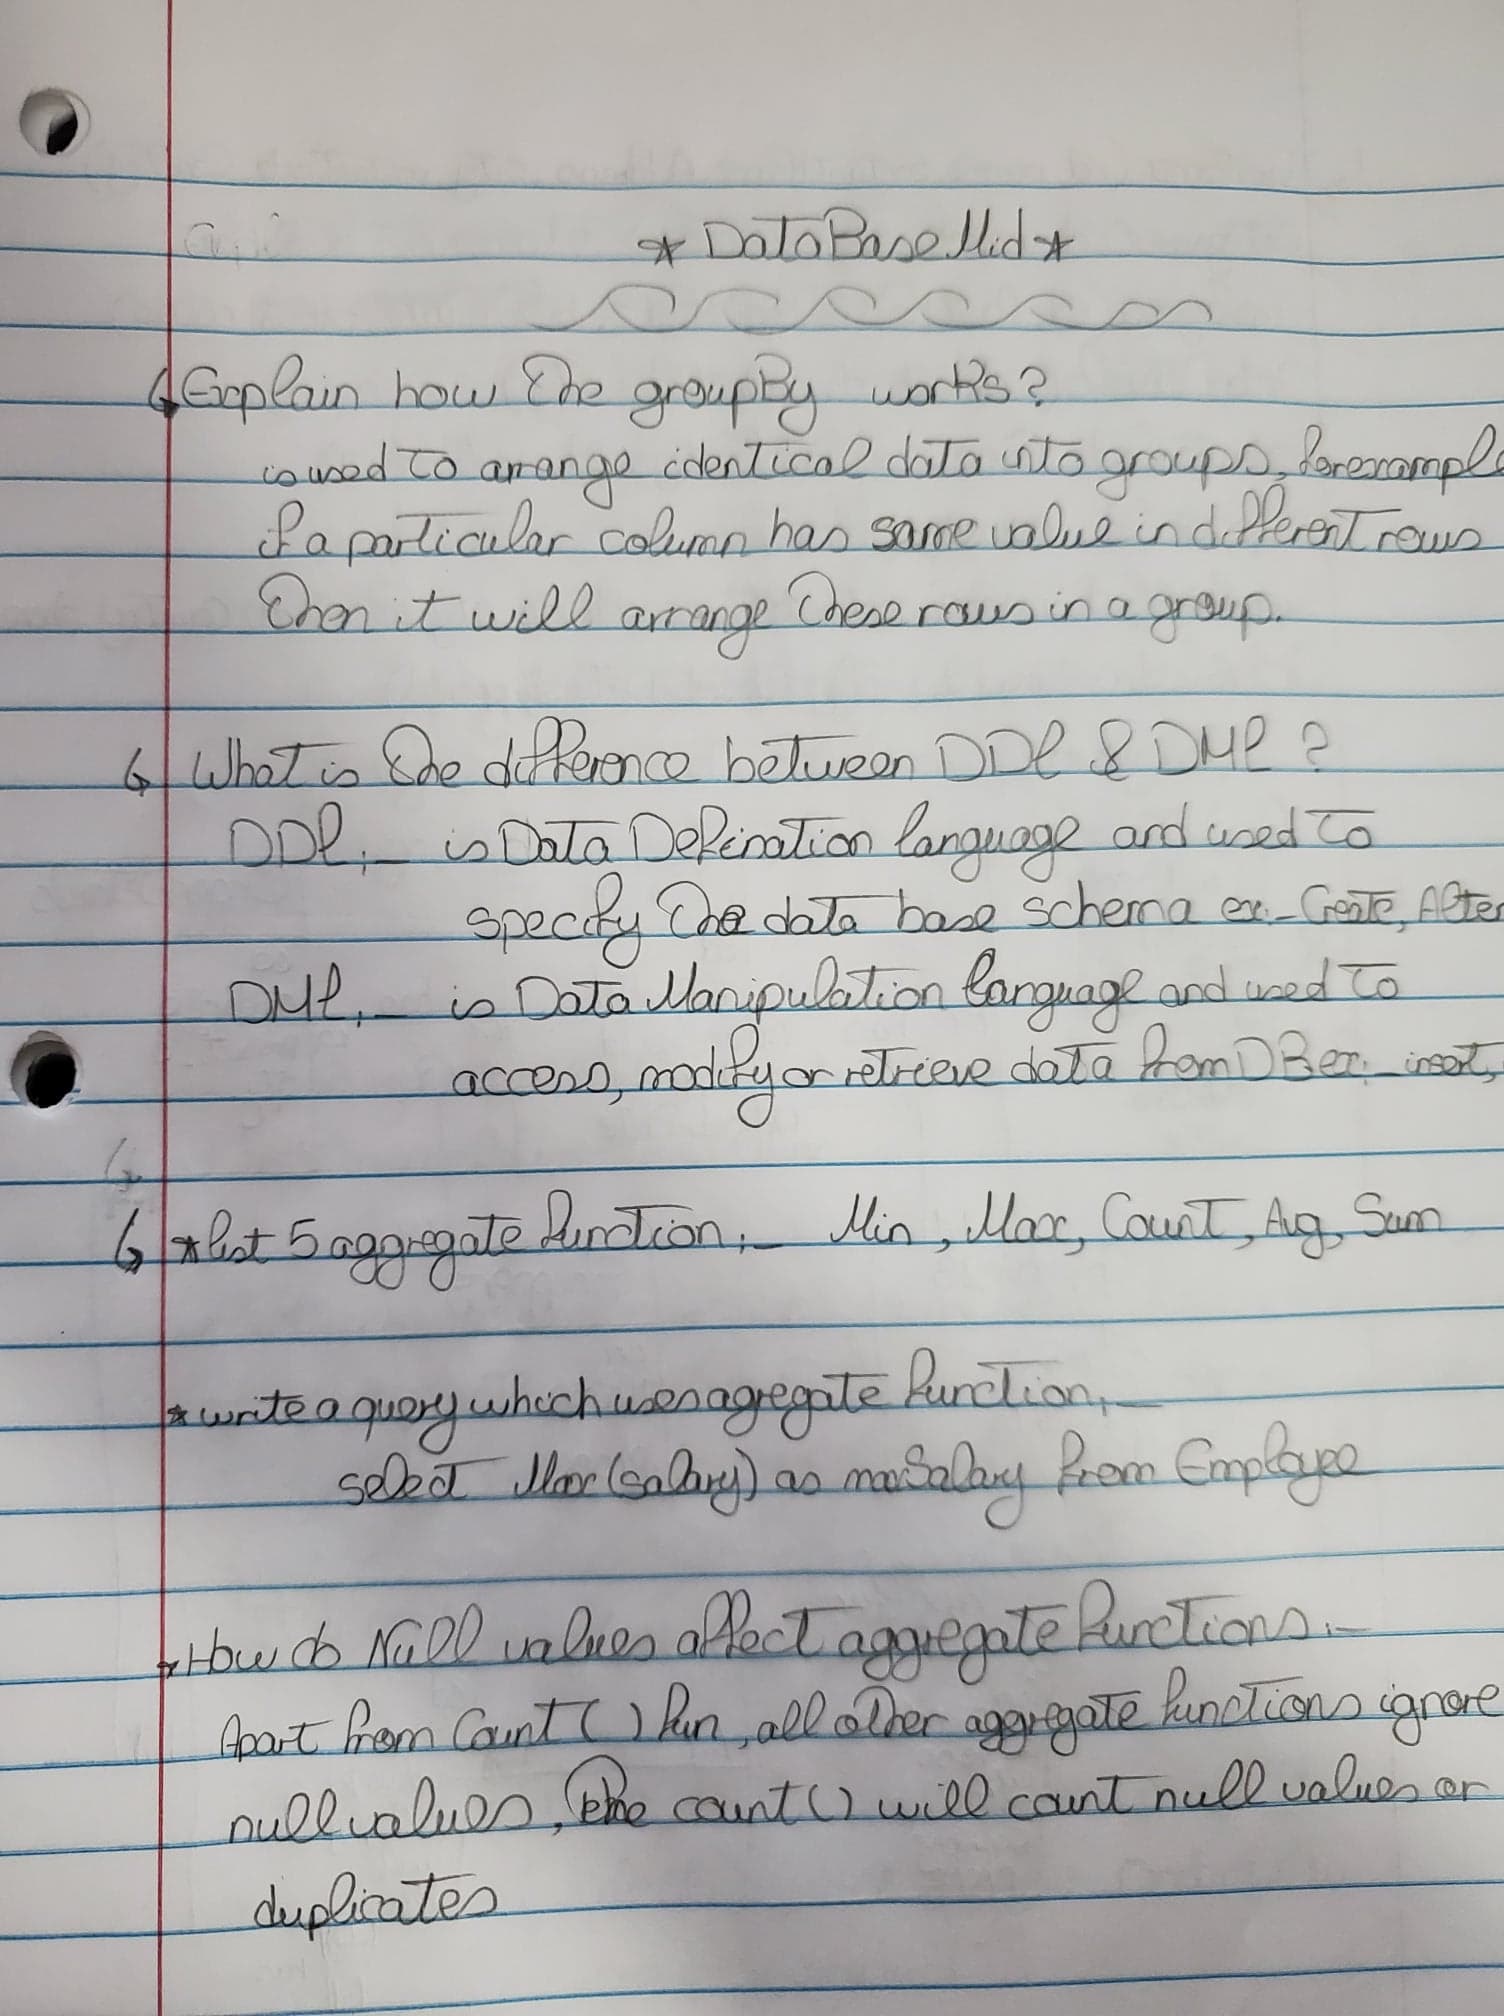 * DataBase Mid *
Explain how the groupBy works?
is used to arrange identical data into groups, forexample
if a particular column has same value in different rows
then it will arrange these rows in a group.
What is the difference between DDL & DML ?
DDL:- is Data Defination language and used to
specify the data base schema ex:- Create, Alter
DML:- is Data Manipulation language and used to
access, modify or retrieve data from DB ex:- insert,
* list 5 aggregate function:- Min, Max, Count, Avg, Sum
* write a query which uses agregate function:-
select Max(salary) as maxSalary from Employee
* How do Null values affect aggregate functions:-
Apart from Count ( ) fun, all other aggregate functions ignore
null values, the count() will count null values or
duplicates